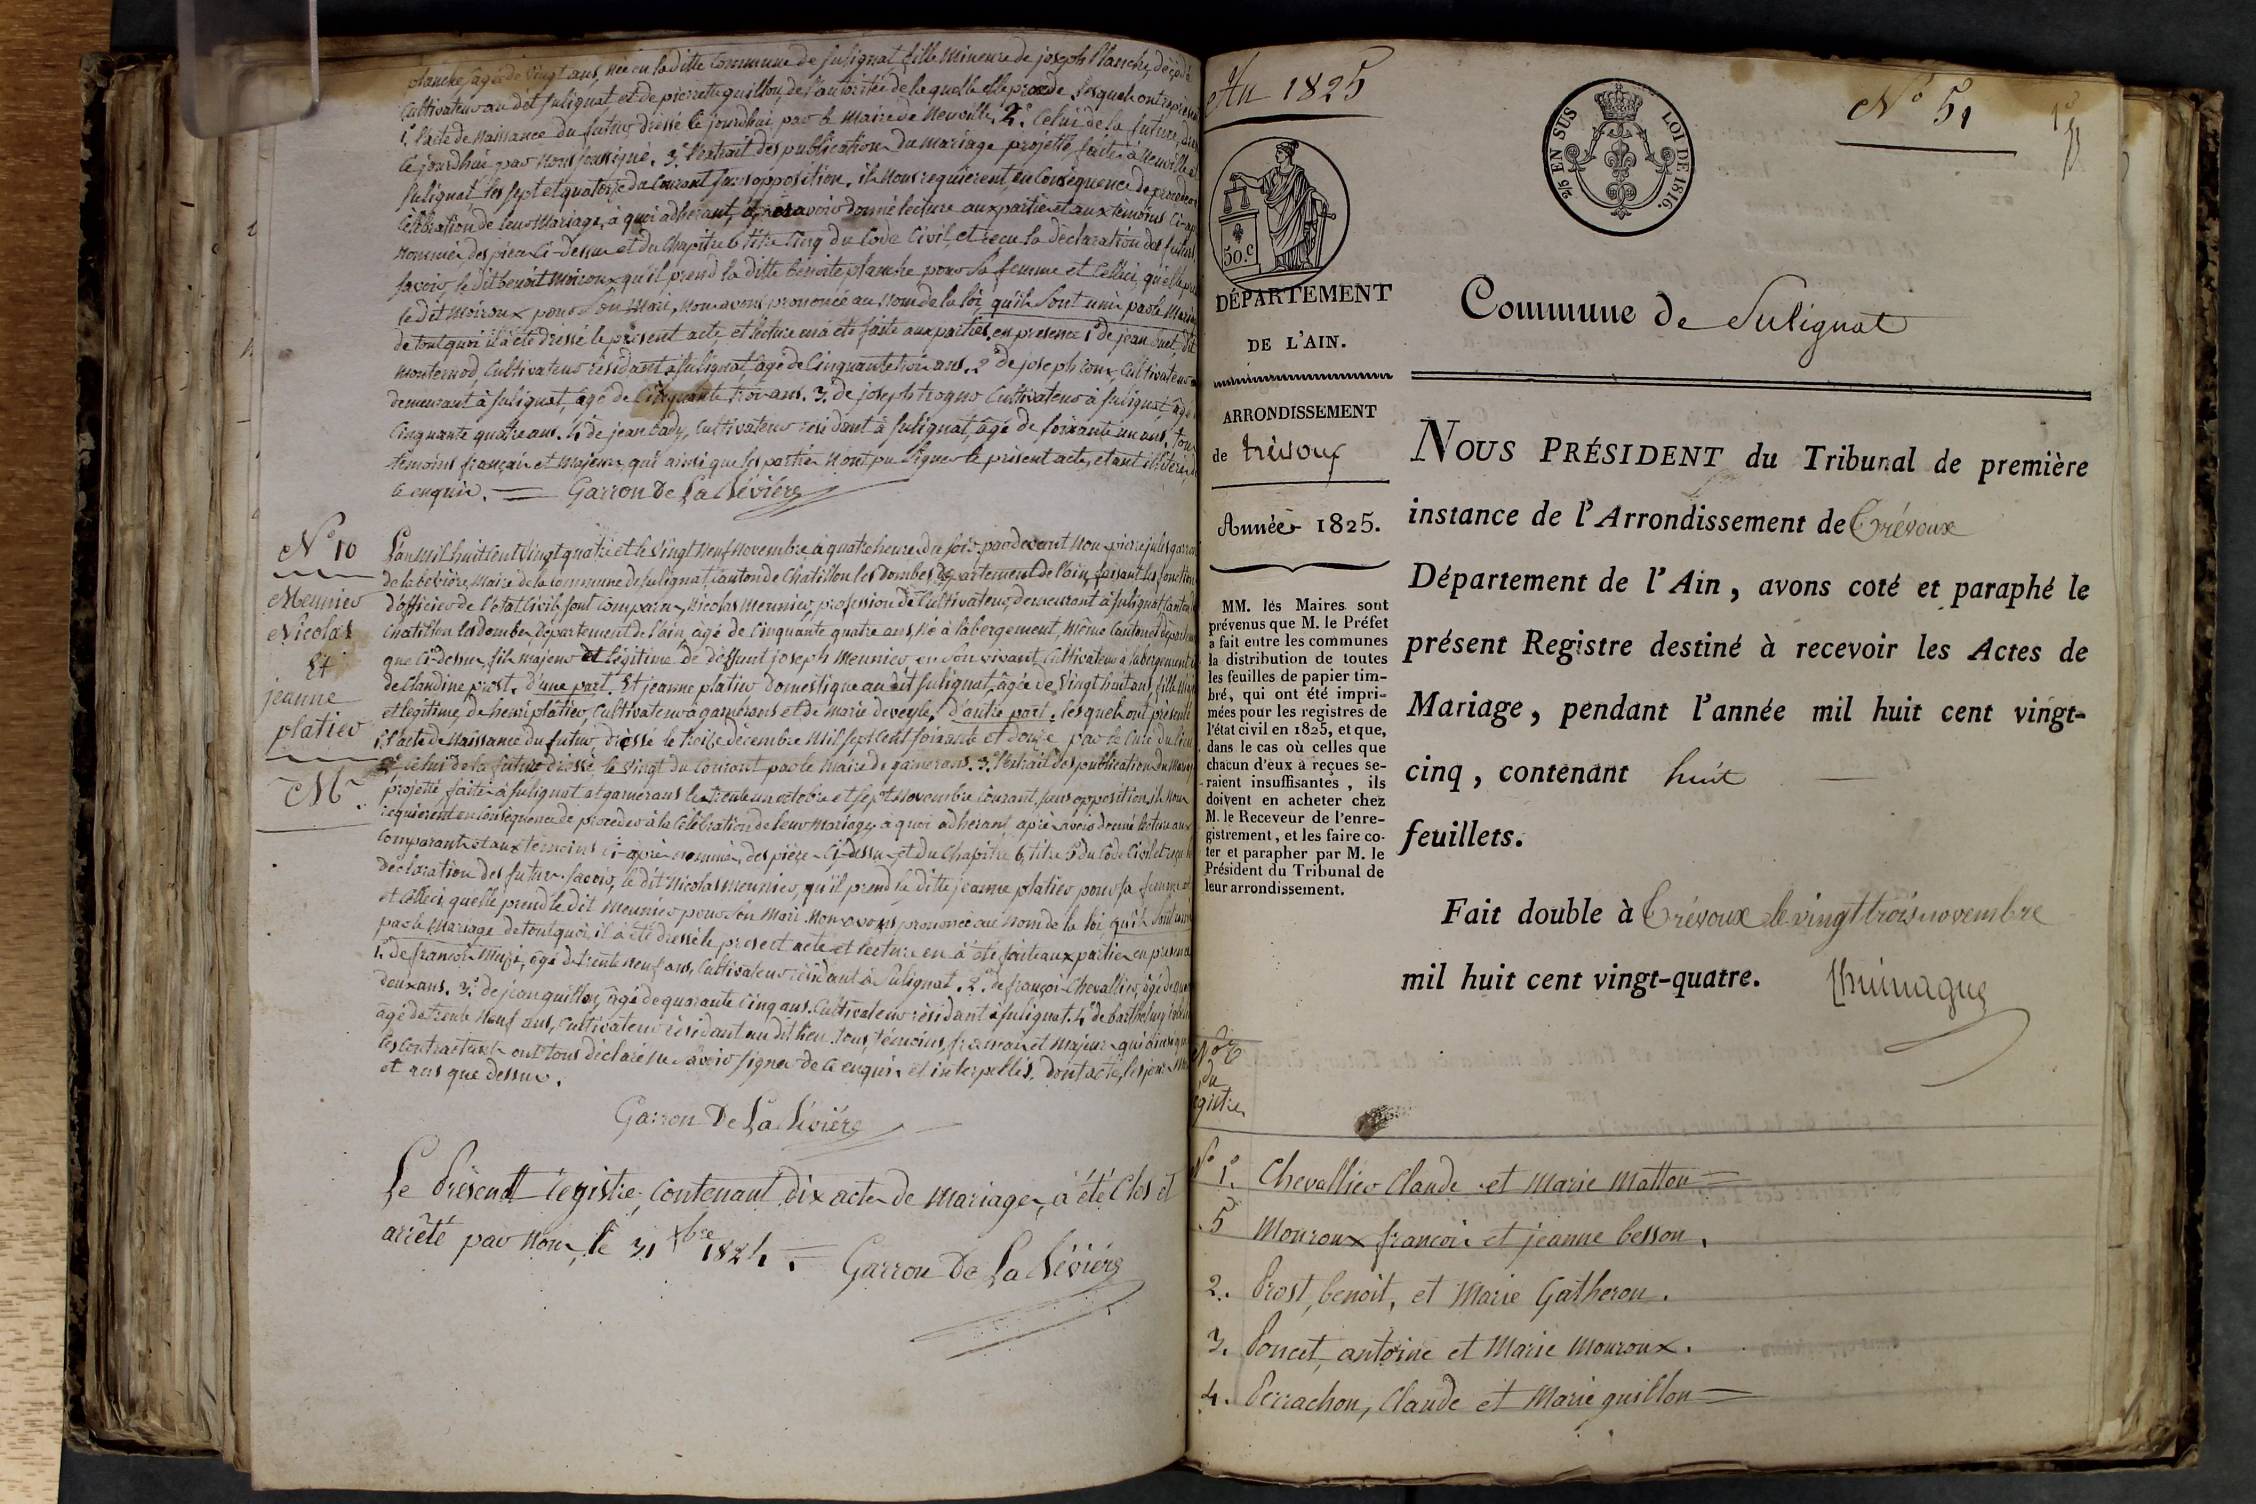 planche, âgée de vingt ans, née en la ditte Commune de Sulignat, fille Mineure de joseph Planche, décédé
Cultivateur au dit Sulignat et de pierrette guillon, de l'autorité de laquelle elle procède. Lesquels ont représenté
1.° l'acte de Naissance du futur, dressé le jourdhui par le Maire de Neuville. 2.° Celui de la future,
ce jourdhui par Nous soussigné. 3.° l'extrait des publications du mariage projetté, faites à Neuville et
Sulignat les sept et quatorze du Courant sans opposition. ils Nous requierent en Conséquence de procéder
Célébration de leur Mariage, à quoi adhérant, après avoir donné lecture aux parties et aux témoins Ci-ap
Nommés, des pièces Ci-Dessus et du Chapitre 6 titre Cinq du Code Civil, et reçu la déclaration des futurs,
Savoir, le dit benoit Moiroux qu'il prend la ditte benoite planche pour Sa femme et Celleci, qu'elle pre
le dit Moiroux pour Son Mari, Nous avons prononcé au Nom de la loi, qu'ils Sont unis par le Maria
de tout quoi il a été dressé le présent acte, et lecture en a été faite aux parties, en presence 1.° de jean buet, dit
Monternod, Cultivateur résidant à Sulignat, âgé de Cinquante trois ans. 2.° de joseph roux, Cultivateur
demeurant à Sulignat, âgé de Cinquante trois ans. 3.° de joseph Cultivateur à Sulignat, âgé
Cinquante quatre ans. 4.° de jean bady, Cultivateur résidant à Sulignat, âgé de soixante un ans, tous
témoins français et Majeurs, qui ainsi que les parties N'ont pu Signer le présent acte, étant illitérés, de
ce enquis. = Garron De La Bévière
N.° 10
Meunier
Nicolas
Et
jeanne
platier
M.
L'an mil huit cent vingt quatre et le vingt Neuf Novembre à quatre heures du soir, par devant Nous pierre jules garron
de la bévière, Maire de la Commune de Sulignat, Canton de Chatillon les Dombes, Département de l'ain, faisant les fonctions
d'officier de l'état Civil, sont Comparus, Nicolas Meunier, profession de Cultivateur, demeurant à Sulignat Canton de
Chatillon les Dombes Département de l'ain, âgé de Cinquante quatre ans, Né à l'abergement, même Canton et départem
que Ci-dessus, fils majeur et légitime de deffunt joseph Meunier, en Son vivant, Cultivateur à l'abergement et
de Claudine prost, d'une part. Et jeanne platier Domestique au dit Sulignat, âgée de vingt huit ans, fille Maj
et légitime, de henri platier, Cultivateur à garnerans et de Marie deveyle, d'autre part. lesquels ont présenté
1.° l'acte de Naissance du futur, dressé le treize décembre mil sept cent soixante et douze par le Curé du lieu
2.° Celui de la future dressé le vingt du Courant par le Maire de garnerans. 3.° l'extrait des publications du Maria
projetté, faites à Sulignat et garnerans les trente un octobre et sept Novembre Courant, sans opposition, ils Nous
requierent en Conséquence de procéder à la Célébration de leur Mariage, à quoi adhérant, après avoir donné lecture aux
Comparants et aux témoins ci-après nommés, des pièces Ci-dessus et du Chapitre 6, titre 5 du Code Civil et reçu la
déclaration des futurs. savoir, le dit Nicolas Meunier, qu'il prend la ditte jeanne platier pour sa femme et
et Celleci, quelle prend le dit Meunier pour Son Mari. Nous avons prononcé au Nom de la loi, qu'ils Sont unis
par le Mariage. de tout quoi, il a été dressé le présent acte et lecture en a été faite aux parties en présence
1.° de francois âgé de trente neuf ans, Cultivateur résidant à Sulignat. 2.° de françois Chevallier, âgé de
deux ans. 3.° de jean guillon, âgé de quarante Cinq ans, Cultivateur résidant à Sulignat. 4.° de barthelemy
âgé de trente Neuf ans, Cultivateur résidant au dit lieu. tous, témoins, français et majeurs qui ainsi que
les contractants ont tous déclaré ne savoir signer de ce enquis et interpellés. Dont acte, les jour, Mois
et ans que dessus.
Garron De La Bévière
Le Présent régistre, Contenant dix actes de Mariage, à été Clos et
arrêté par Nous, le 31 xbre 1824. = Garron De La Bévière
An 1825
N.° 51
2/5 EN SUS
LOI DE 1816.
50.c
DÉPARTEMENT
DE L'AIN.
ARRONDISSEMENT
de trévoux
Année 1825.
MM. les Maires sont
prévenus que M. le Préfet
a fait entre les communes
la distribution de toutes
les feuilles de papier tim-
bré, qui ont été impri-
mées pour les registres de
l'état civil en 1825, et que,
dans le cas où celles que
chacun d'eux à reçues se-
raient insuffisantes, ils
doivent en acheter chez
M. le Receveur de l'enre-
gistrement, et les faire co-
ter et parapher par M. le
Président du Tribunal de
leur arrondissement.
Commune de Sulignat
NOUS PRÉSIDENT du Tribunal de première
instance de l'Arrondissement de Trévoux
Département de l'Ain, avons coté et paraphé le
présent Registre destiné à recevoir les Actes de
Mariage, pendant l'année mil huit cent vingt-
cinq, contenant huit
feuillets.
Fait double à Trévoux le vingt trois novembre
mil huit cent vingt-quatre.
du
N.° 1.° Chevallier Claude et Marie Matton =
5 Mouroux francois et jeanne besson.
2. Prost, benoit, et Marie Gatheron.
3. Poncet, antoine et Marie Mouroux.
4. Perrachon, Claude et Marie guillon =